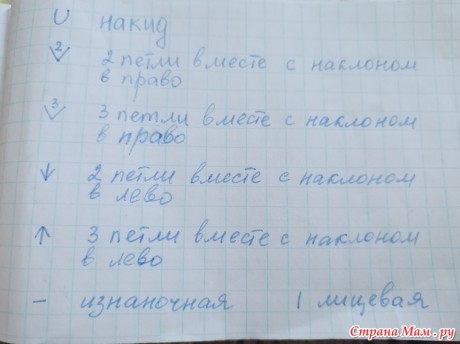 U накид
2 2 петли вместе с наклоном
в право
3 3 петли вместе с наклоном
в право
↓ 2 петли вместе с наклоном
в лево
↑ 3 петли вместе с наклоном
в лево
– изнаночная | лицевая
Страна Мам.ру